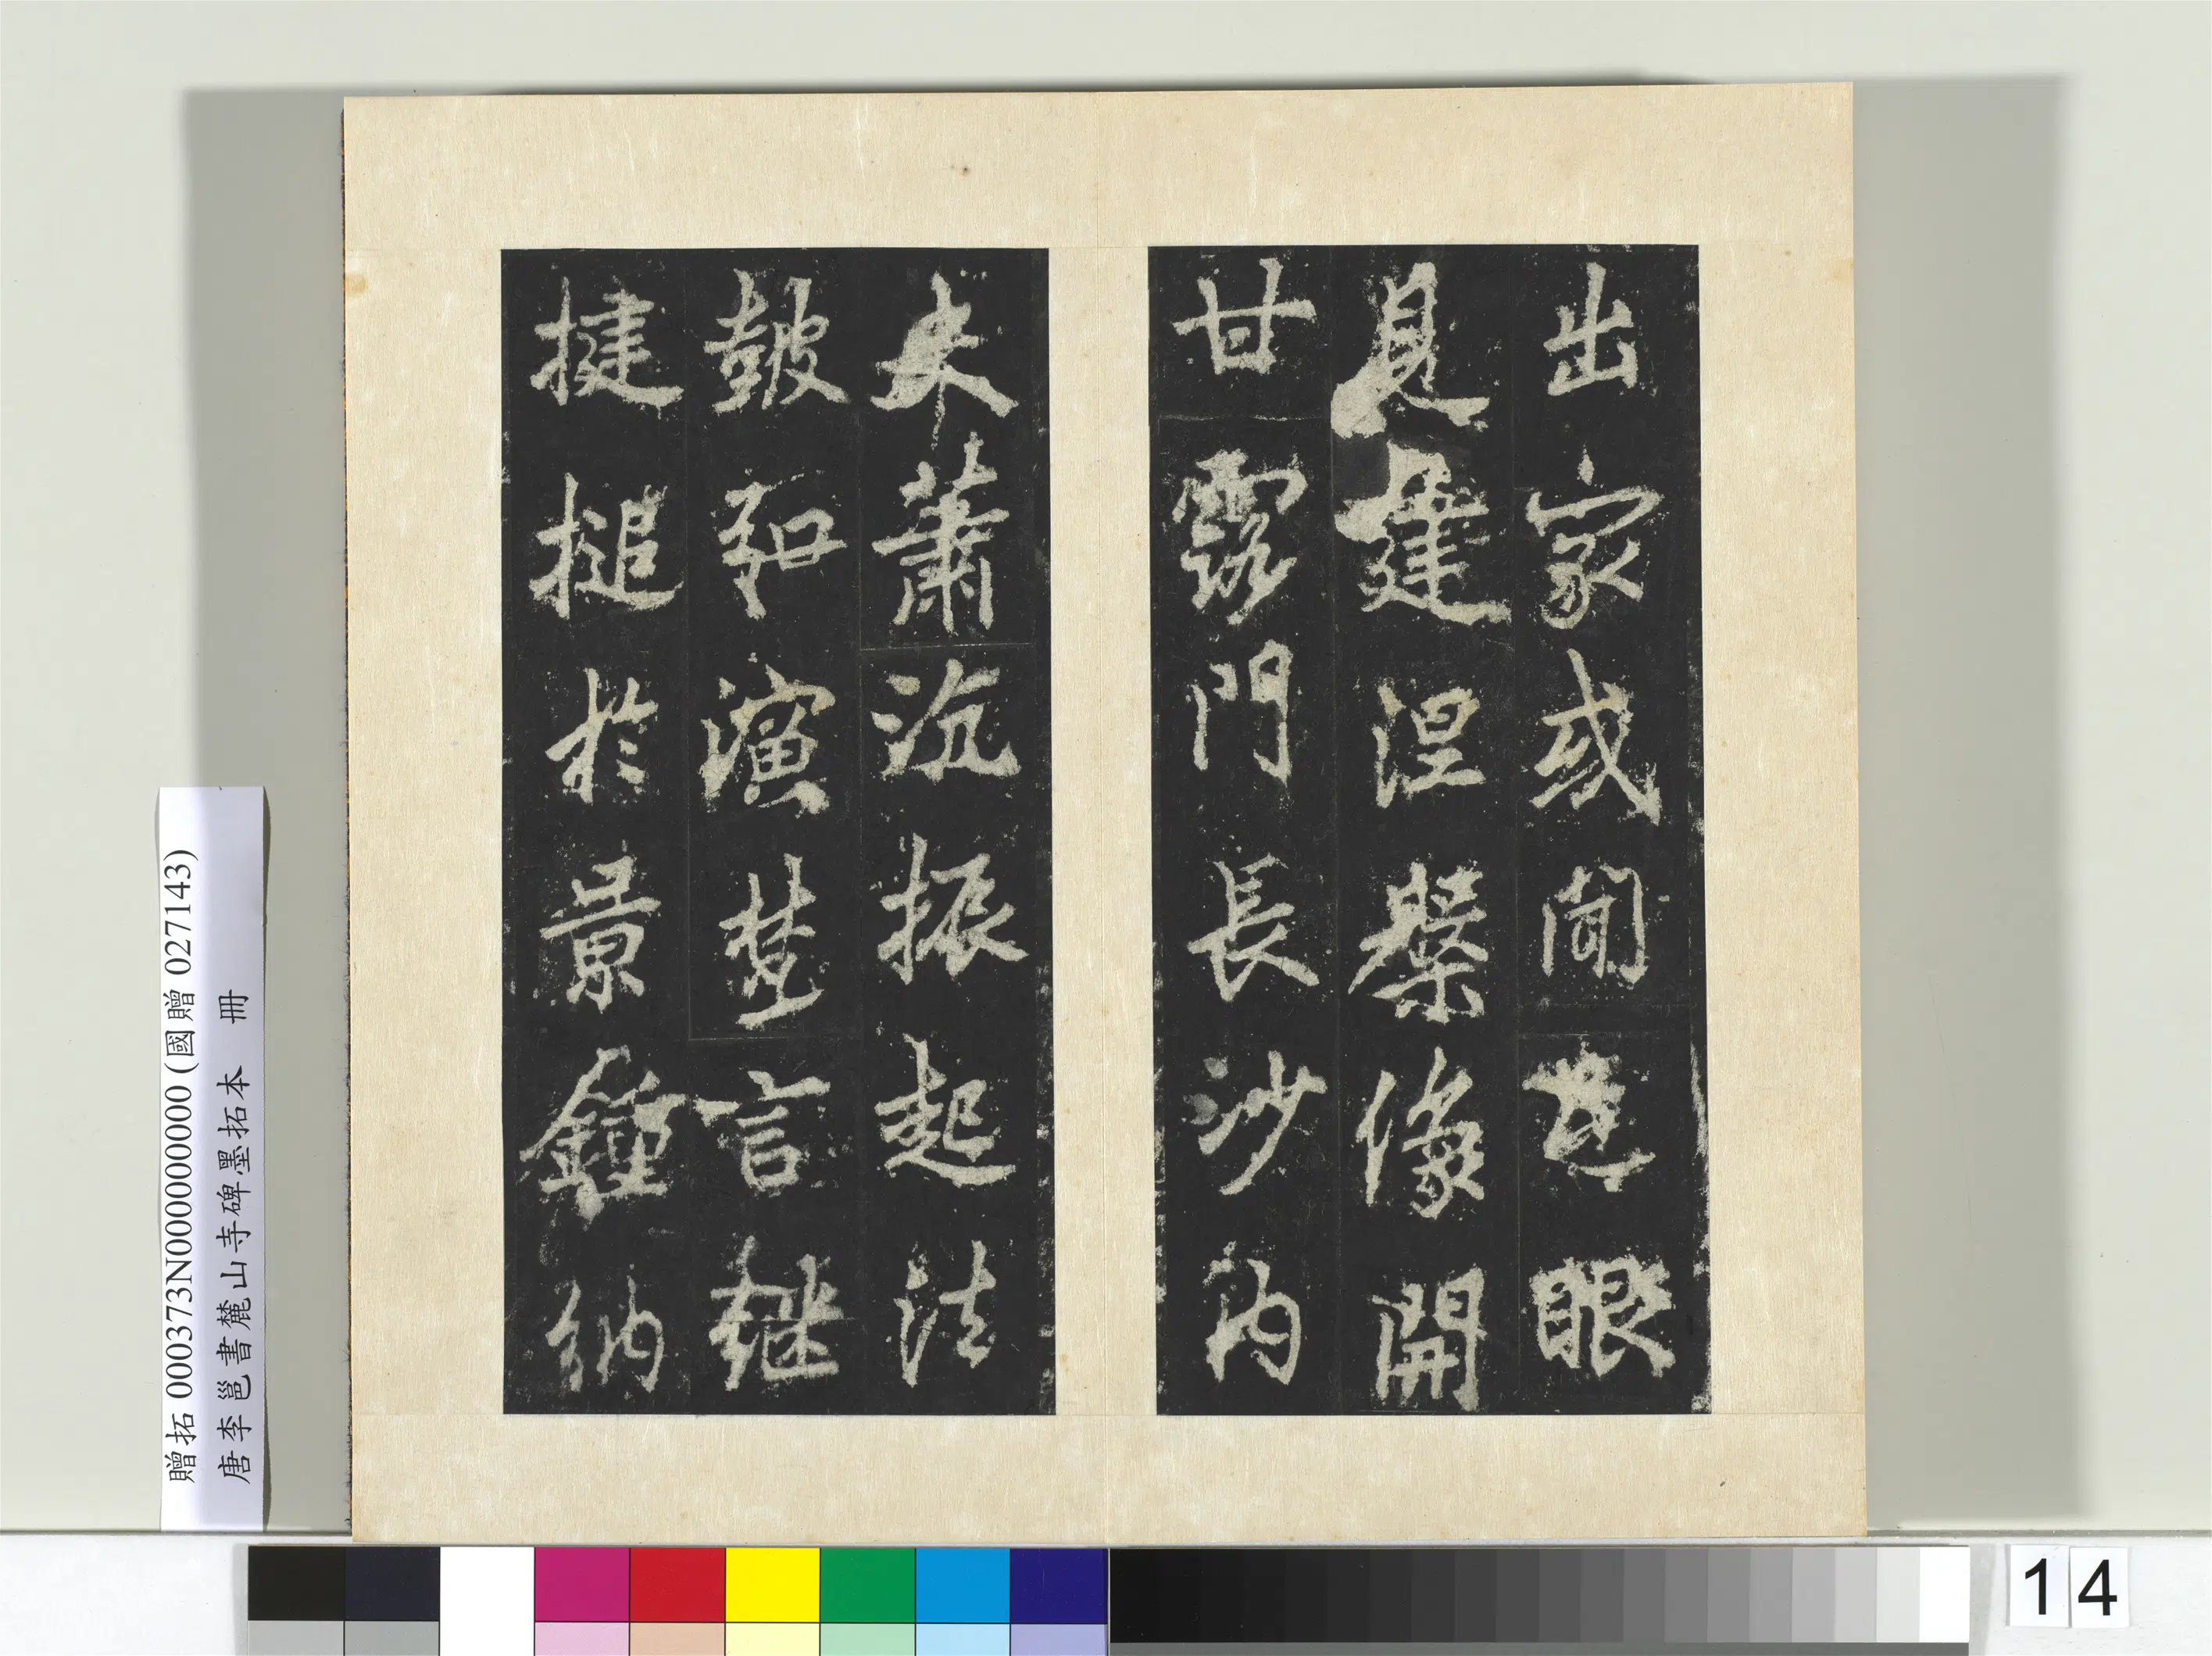 出家或聞道眼
見建涅槃像開
甘露門長沙內
史蕭沆振起法
皷弘演梵言継
揵槌於景鐘納
贈拓 000373N000000000 (國贈 027143)
唐李邕書麓山寺碑墨拓本 冊
14